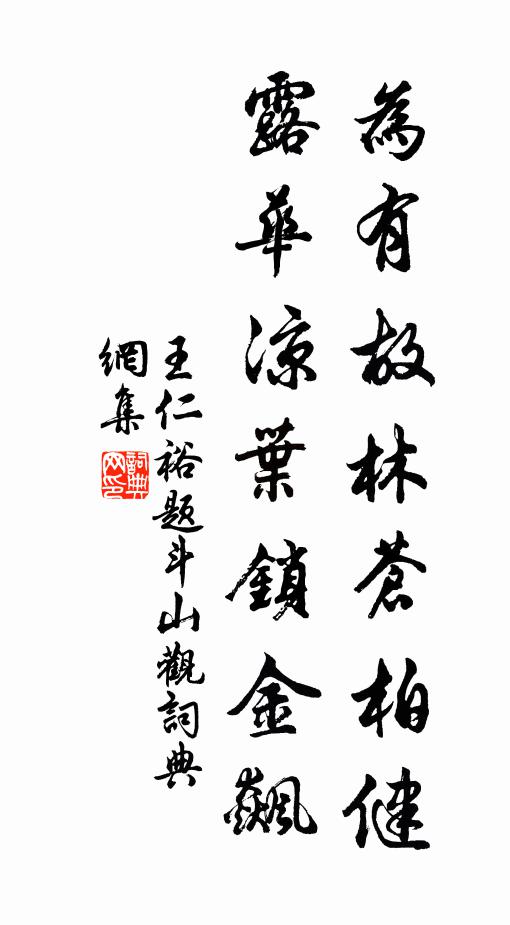 為有故林蒼柏健
露華涼葉鎖金飆
王仁裕題斗山觀詞典
網集
詞典
网印